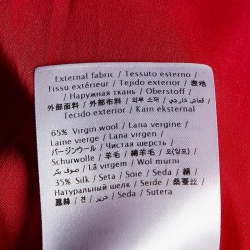 External fabric / Tessuto esterno /
Tissu extérieur / Tejido exterior / 表地
/ Наружная ткань / Oberstoff /
外部面料 / 外部布料 / 외부 소재 / قماش خارجي /
Tecido exterior / Kain eksternal
65% Virgin wool / Lana vergine /
Laine vierge / Lana virgen /
バージンウール / Чистая шерсть /
Schurwolle / 羊毛 / 羊毛 / 모(양모) /
صوف بكر / Lã virgem / Wol murni
35% Silk / Seta / Soie / Seda / 絹 /
Натуральный шелк / Seide / 桑蚕丝 /
蠶絲 / 견 / حرير / Seda / Sutera